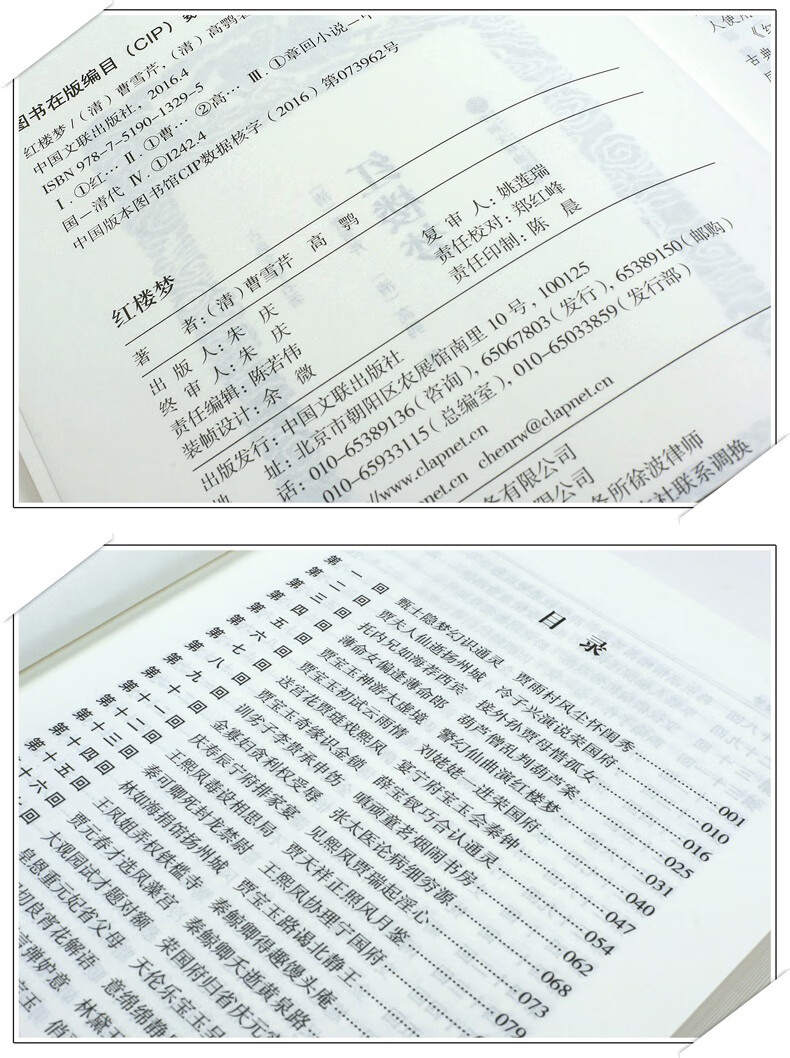 图书在版编目（CIP）
红楼梦/（清）曹雪芹，（清）高鹗
中国文联出版社，2016.4
ISBN 978-7-5190-1329-5
Ⅰ.①红… Ⅱ.①曹… ②高… Ⅲ.①章回小说－中
国－清代 Ⅳ.①I242.4
中国版本图书馆CIP数据核字（2016）第073962号
红楼梦
著 者：（清）曹雪芹 高 鹗
出 版 人：朱 庆
终 审 人：朱 庆 复 审 人：姚莲瑞
责任编辑：陈若伟 责任校对：郑红峰
装帧设计：余 微 责任印制：陈 晨
出版发行：中国文联出版社
地 址：北京市朝阳区农展馆南里 10 号，100125
话：010-65389136（咨询），65067803（发行），65389150（邮购）
010-65933115（总编室），010-65033859（发行部）
//www.clapnet.cn
clapnet.cn chenrw@clapnet.cn
务有限公司
有限公司
务所徐波律师
社联系调换
人使用
古典
目 录
第 一 回 甄士隐梦幻识通灵 贾雨村风尘怀闺秀 001
第 二 回 贾夫人仙逝扬州城 冷子兴演说荣国府 010
第 三 回 托内兄如海荐西宾 接外孙贾母惜孤女 016
第 四 回 薄命女偏逢薄命郎 葫芦僧乱判葫芦案 025
第 五 回 贾宝玉神游太虚境 警幻仙曲演红楼梦 031
第 六 回 贾宝玉初试云雨情 刘姥姥一进荣国府 040
第 七 回 送宫花贾琏戏熙凤 宴宁府宝玉会秦钟 047
第 八 回 贾宝玉奇缘识金锁 薛宝钗巧合认通灵 054
第 九 回 训劣子李贵承申饬 嗔顽童茗烟闹书房 062
第 十 回 金寡妇贪利权受辱 张太医论病细穷源 068
第十一回 庆寿辰宁府排家宴 见熙凤贾瑞起淫心 073
第十二回 王熙凤毒设相思局 贾天祥正照风月鉴 079
第十三回 秦可卿死封龙禁尉 王熙凤协理宁国府
第十四回 林如海捐馆扬州城 贾宝玉路谒北静王
第十五回 王凤姐弄权铁槛寺 秦鲸卿得趣馒头庵
十六回 贾元春才选凤藻宫 秦鲸卿夭逝黄泉路
回 大观园试才题对额 荣国府归省庆元宵
皇恩重元妃省父母 天伦乐宝玉呈
切良宵花解语 意绵绵静
言弹妒意 林黛玉
宝玉 俏